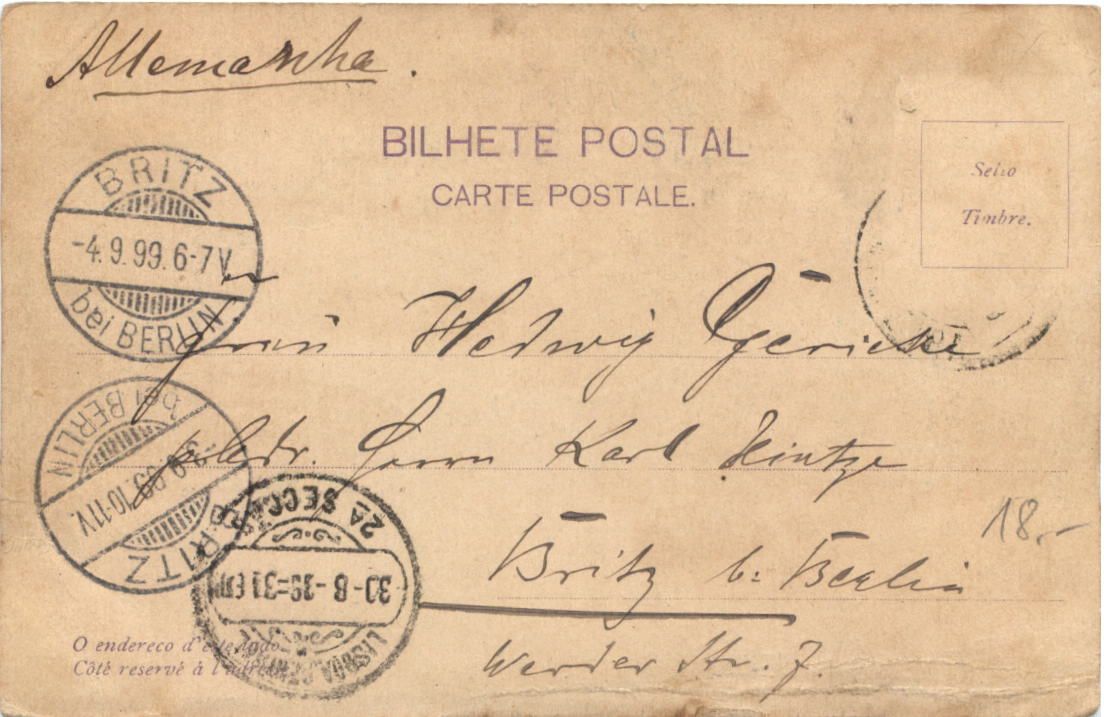 Allemanha.
BILHETE POSTAL
CARTE POSTALE.
Sello
Timbre.
BRITZ
-4.9.99.6-7V.
bei BERLIN
Frau Hedwig Gericke
Herrn Karl Hintze
Britz b. Berlin
Werder Str. 7.
18.-
BRITZ
9.99.10-11V.
bei BERLIN
2ª SECÇÃO
30-8-99
LISBOA CENTRAL
O endereco d'este lado
Côté reservé à l'adresse